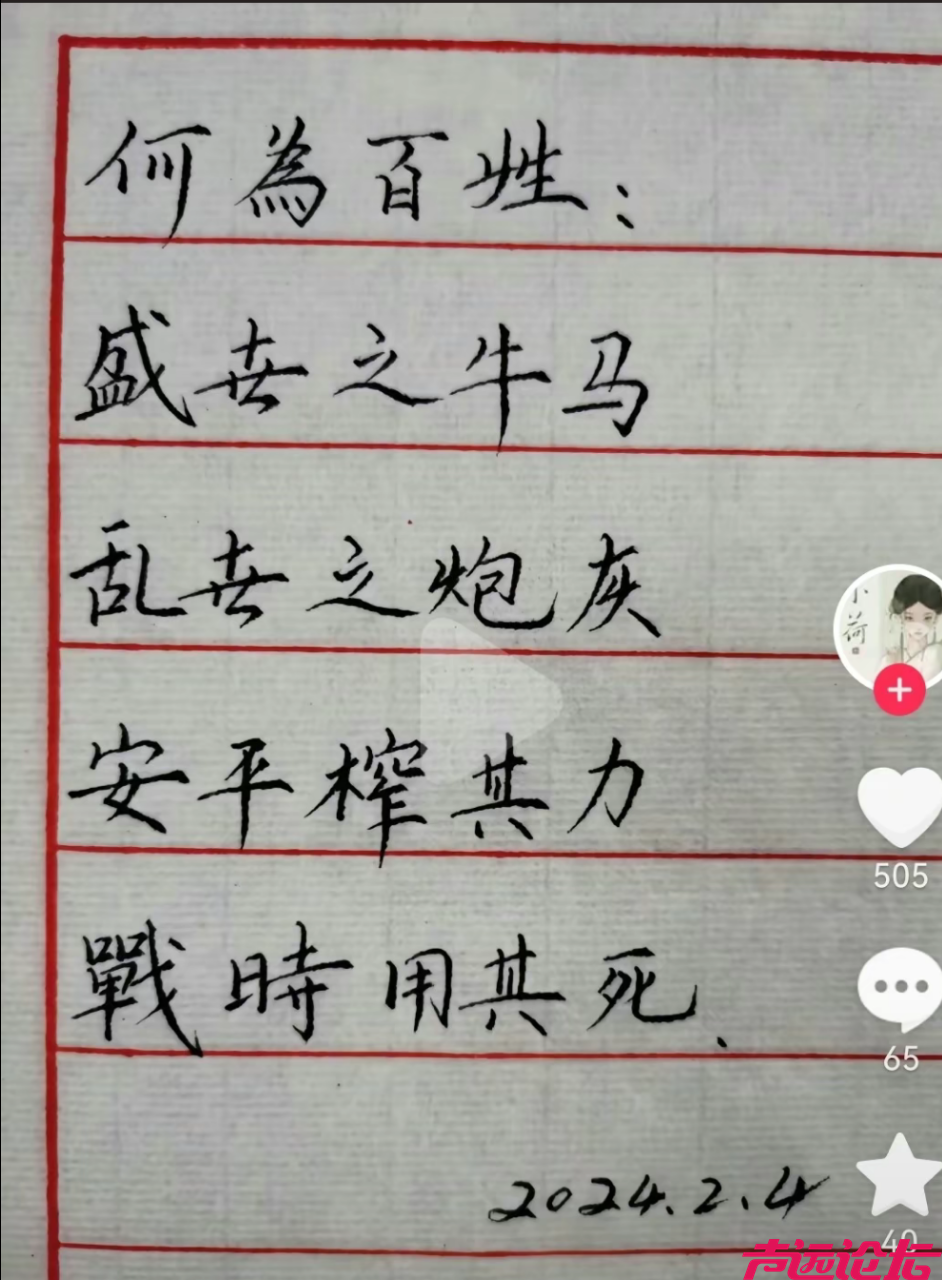 何為百姓：
盛世之牛马
乱世之炮灰
安平榨其力
戰時用其死、
2024.2.4
小荷
505
65
40